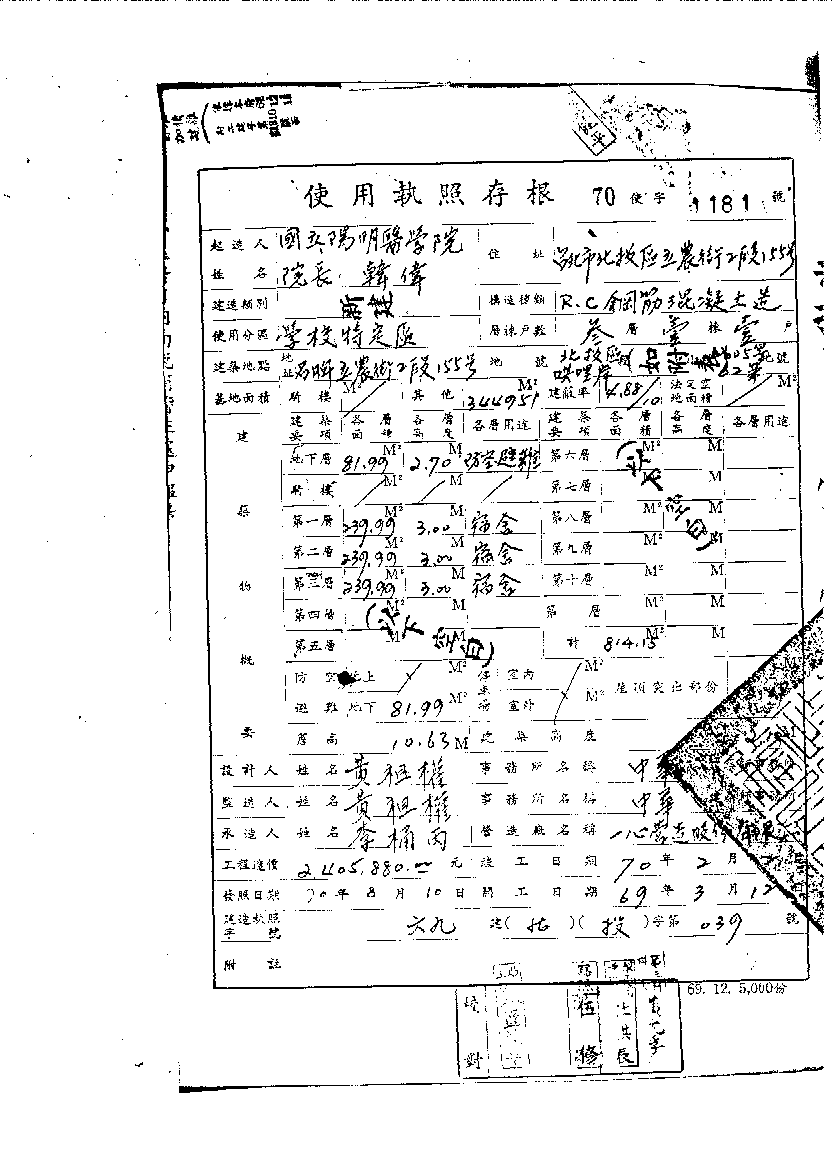 使用執照存根 70 使字 1181 號
起造人 國立陽明醫學院 住址 北市北投區立農街2段155號
姓名 院長 韓偉
建造類別 新建 構造種類 R.C 鋼筋混凝土造
使用分區 學校特定區 層棟戶數 叁層 壹棟 壹戶
建築地點 地址 立農街2段155號 地號 北投區 如附表 地號
基地面積 騎樓 M² 其他 344951 M² 建蔽率 4.88/10 法定空地面積
建築物概要
建築要項 各層面積 各層高度 各層用途 建築要項 各層面積 各層高度 各層用途
地下層 81.99 M² 2.70 M 防空避難 第六層 M² M
騎樓 M² M 第七層 M² M
第一層 239.99 M² 3.00 M 宿舍 第八層 M² M
第二層 239.99 M² 3.00 M 宿舍 第九層 M² M
第三層 239.99 M² 3.00 M 宿舍 第十層 M² M
第四層 M² M 第 層 M² M
第五層 (以下空白) 計 814.15
防空 地上 M² 停車場 室內 M² 屋頂突出部份
避難 地下 81.99 M² 室外 M²
簷高 10.63 M 建築高度
設計人 姓名 黃祖權 事務所名稱 中華
監造人 姓名 黃祖權 事務所名稱 中華
承造人 姓名 李桶丙 營造廠名稱 一心營造股份
工程造價 2,405,880.00 元 竣工日期 70 年 2 月
發照日期 70 年 8 月 10 日 開工日期 69 年 3 月 12
建造執照字號 六九 建(北)(投)字第 039 號
附註
69. 12. 5,000份
校對